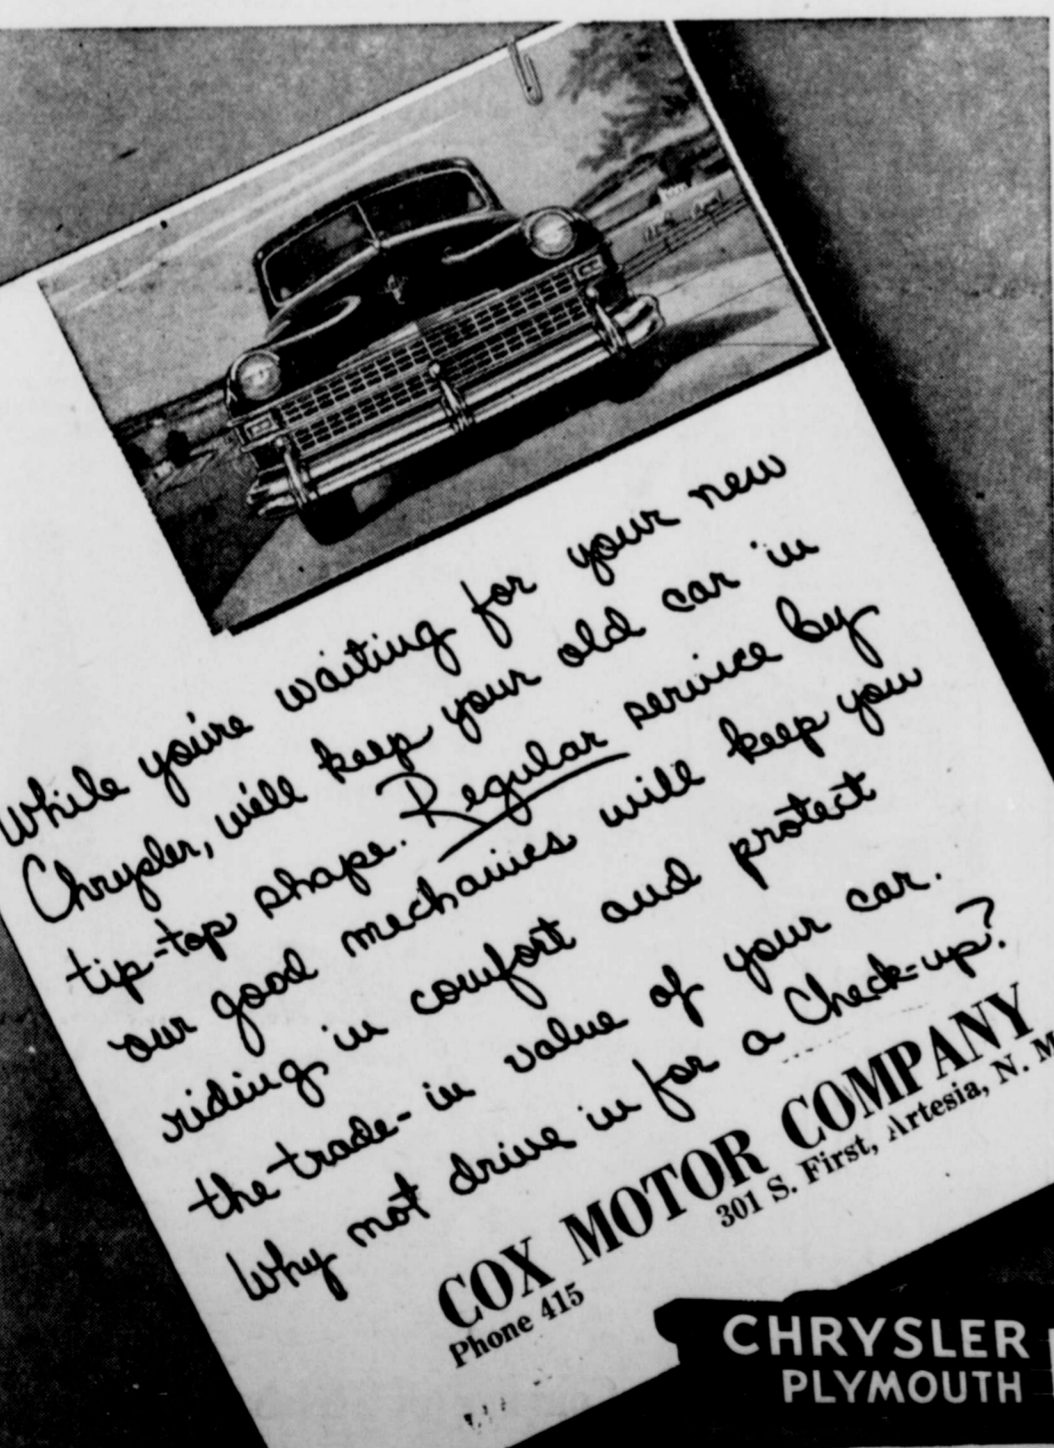 While you're waiting for your new
Chrysler, we'll keep your old car in
tip-top shape. Regular service by
our good mechanics will keep you
riding in comfort and protect
the trade-in value of your car.
Why not drive in for a Check-up?
COX MOTOR COMPANY
301 S. First, Artesia, N. M
Phone 415
CHRYSLER
PLYMOUTH